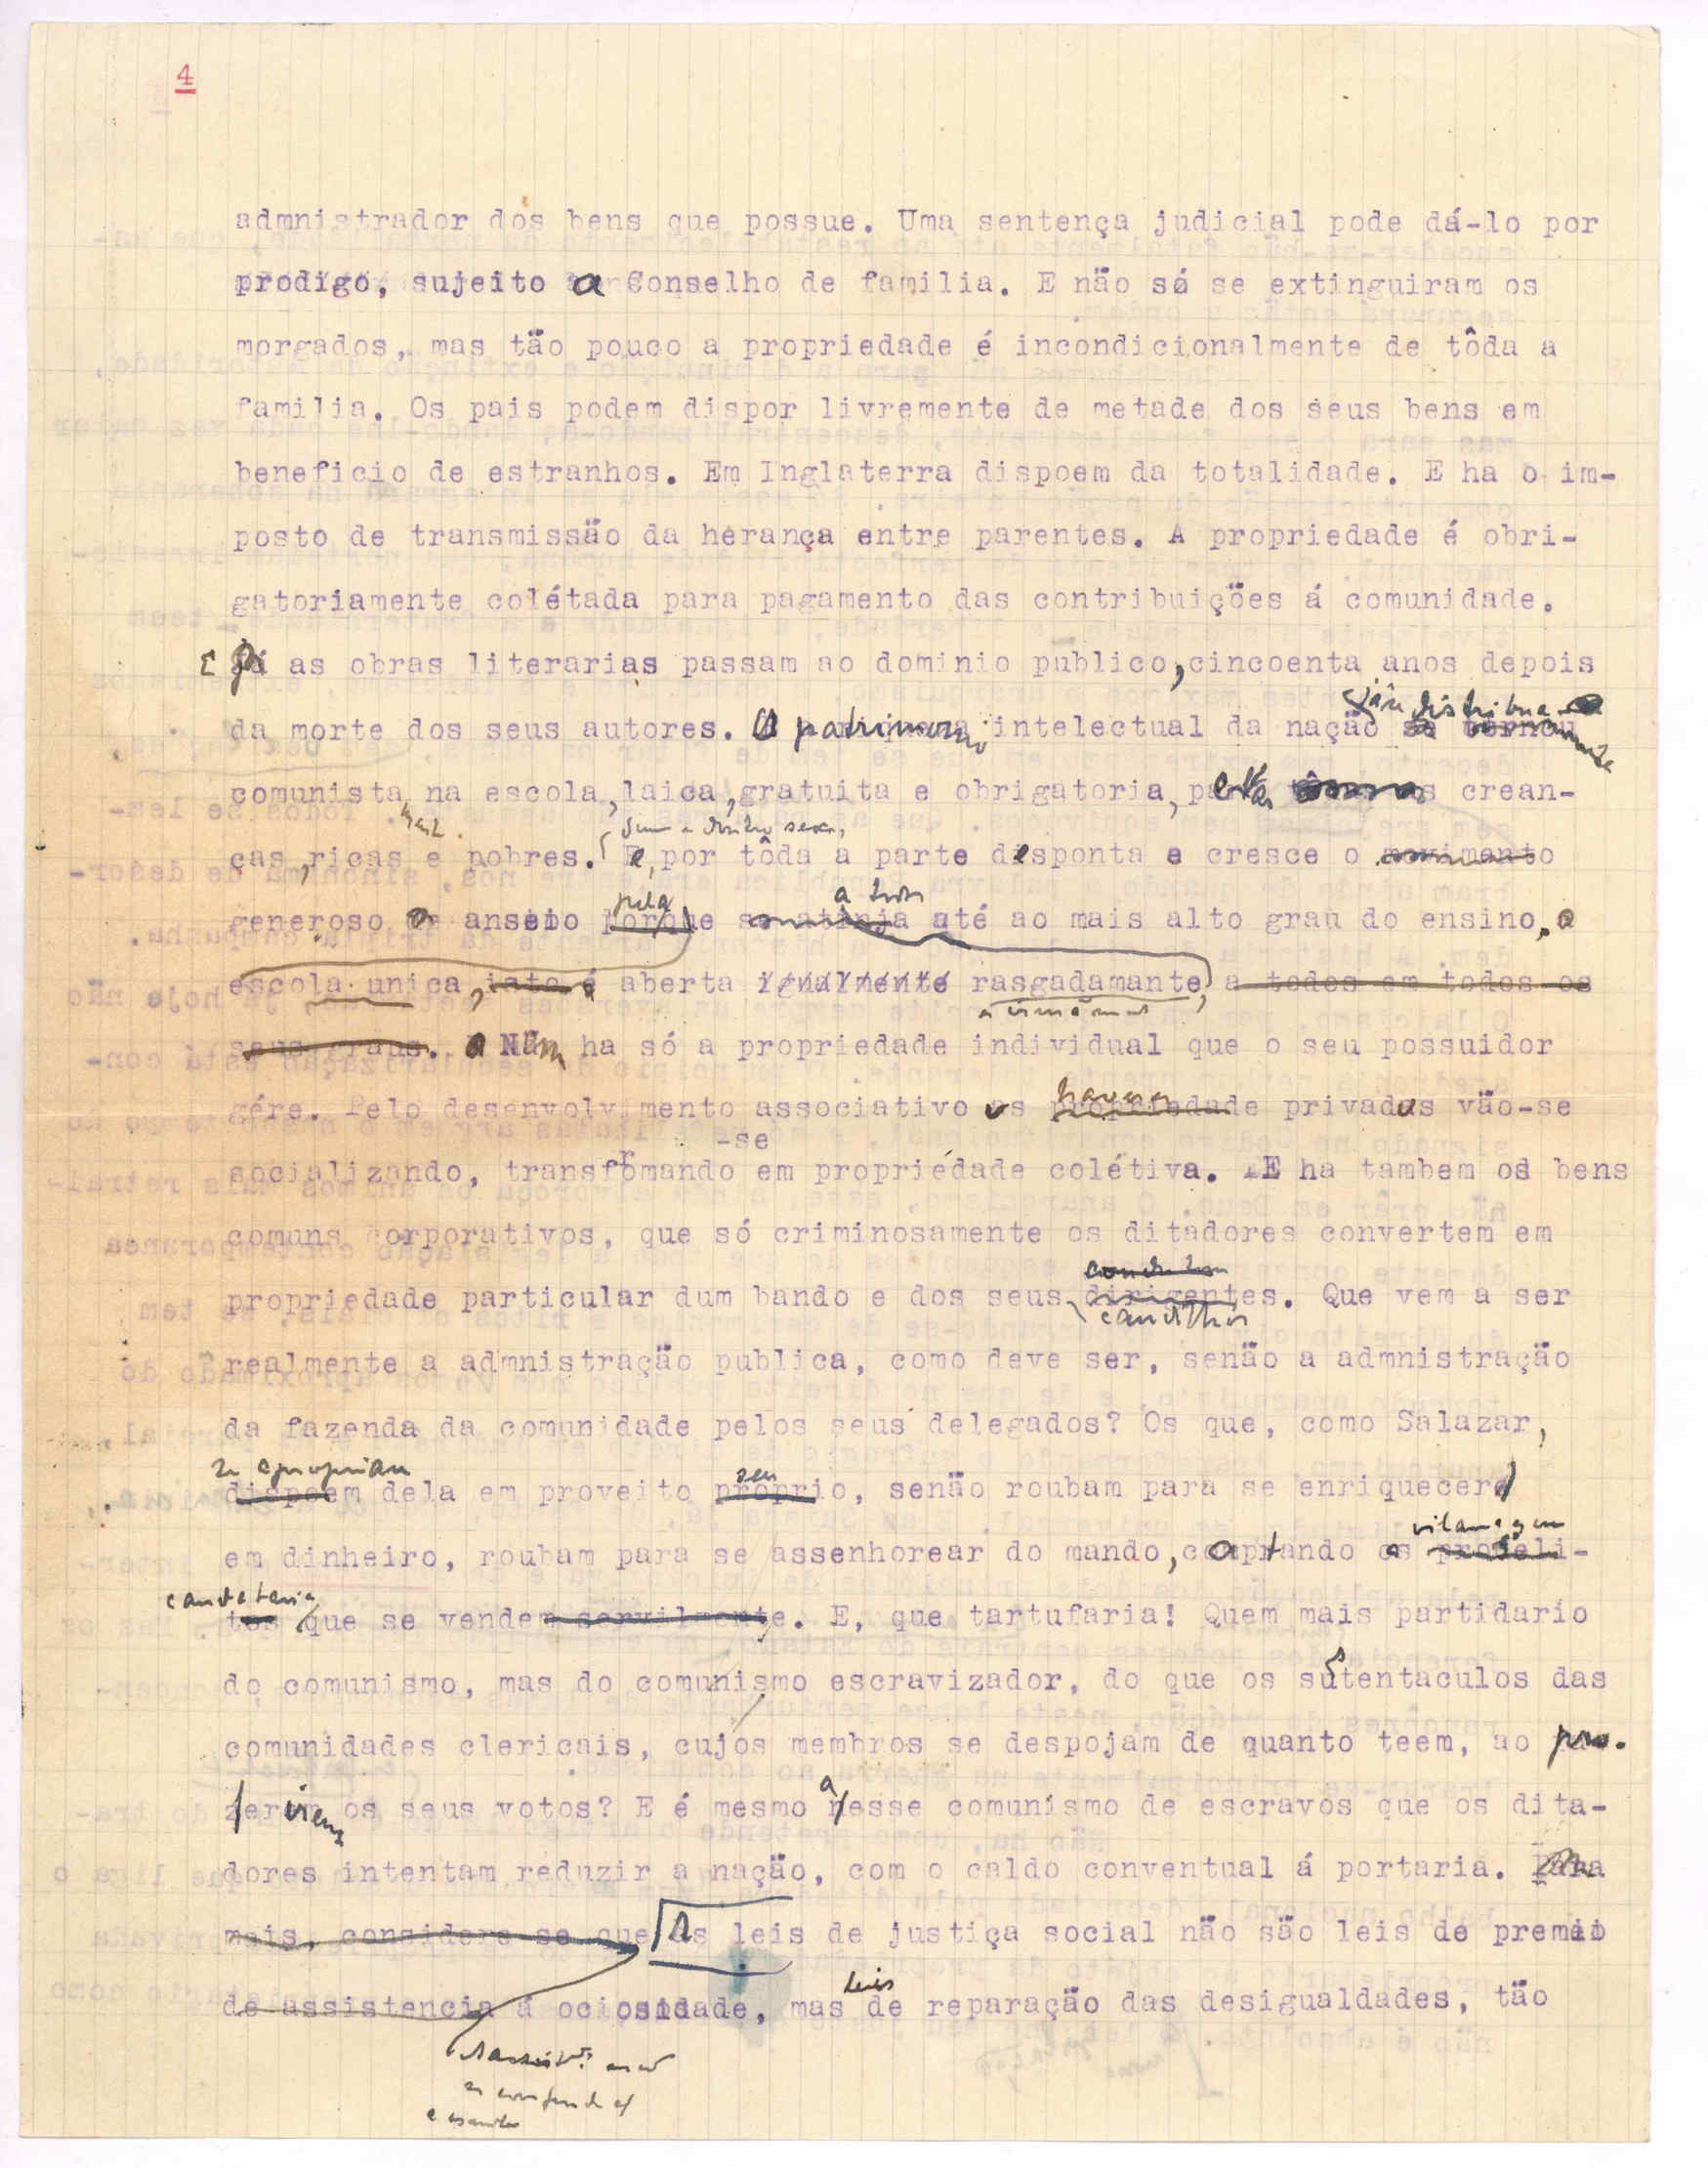 4
admnistrador dos bens que possue. Uma sentença judicial pode dá-lo por
prodigo, sujeito a Conselho de familia. E não só se extinguiram os
morgados, mas tão pouco a propriedade é incondicionalmente de tôda a
familia. Os pais podem dispor livremente de metade dos seus bens em
beneficio de estranhos. Em Inglaterra dispoem da totalidade. E ha o im-
posto de transmissão da herança entre parentes. A propriedade é obri-
gatoriamente colétada para pagamento das contribuições á comunidade.
Já as obras literarias passam ao dominio publico, cincoenta anos depois
da morte dos seus autores. O patrimonio intelectual da nação se tornou
comunista na escola, laica, gratuita e obrigatoria, crean-
ças, ricas e pobres. E, por tôda a parte desponta e cresce o movimento
pela a todos
generoso anseio porque se atinja até ao mais alto grau do ensino, a
escola unica, isto é aberta igualmente rasgadamante, a todos em todos os
seus graus. Não ha só a propriedade individual que o seu possuidor
haveres
gére. Pelo desenvolvimento associativo os propriedade privados vão-se
-se
socializando, transformando em propriedade colétiva. E ha tambem os bens
comuns corporativos, que só criminosamente os ditadores convertem em
propriedade particular dum bando e dos seus dirigentes. Que vem a ser
caudilhos
realmente a admnistração publica, como deve ser, senão a admnistração
da fazenda da comunidade pelos seus delegados? Os que, como Salazar,
se apropriam seu
dispoem dela em proveito próprio, senão roubam para se enriquecer
vilanagem
em dinheiro, roubam para se assenhorear do mando, comprando os proseli-
tos que se vendem servilmente. E, que tartufaria! Quem mais partidario
do comunismo, mas do comunismo escravizador, do que os sustentaculos das
comunidades clericais, cujos membros se despojam de quanto teem, ao pro-
os seus votos? E é mesmo a esse comunismo de escravos que os dita-
dores intentam reduzir a nação, com o caldo conventual á portaria. Para
mais, considere se que As leis de justiça social não são leis de premio
leis
de assistencia á ociosidade, mas de reparação das desigualdades, tão